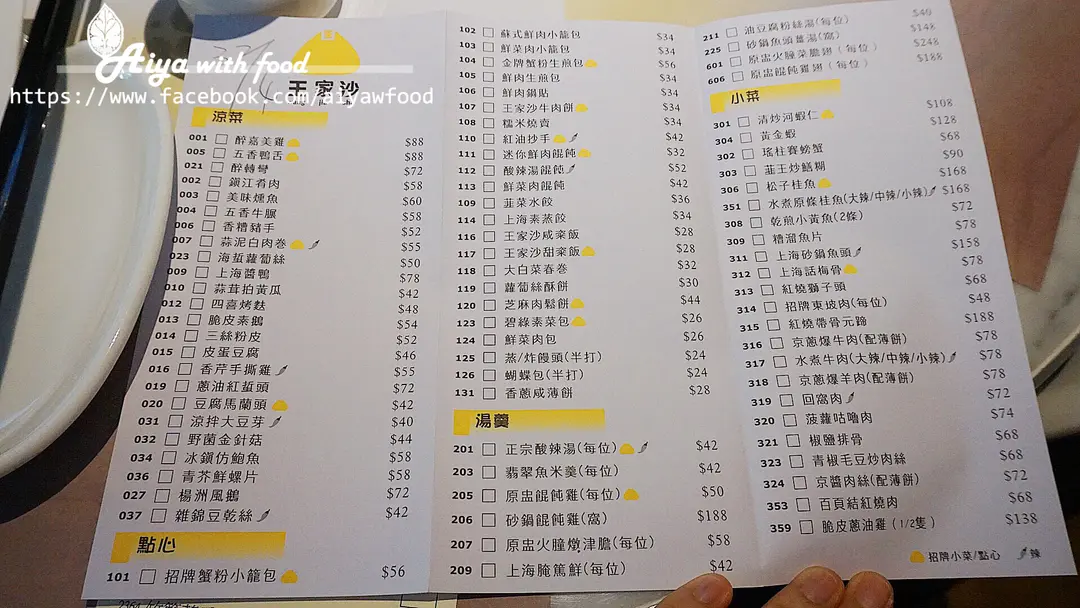 Aiya with food
https://www.facebook.com/aiyawfood
王家沙
涼菜
001 醉嘉美雞 $88
005 五香鴨舌 $88
021 醉轉彎 $72
002 鎮江肴肉 $58
003 美味燻魚 $60
004 五香牛腱 $58
006 香糟豬手 $52
007 蒜泥白肉卷 $55
023 海蜇蘿蔔絲 $50
009 上海醬鴨 $78
010 蒜茸拍黃瓜 $42
012 四喜烤麩 $48
013 脆皮素鵝 $54
014 三絲粉皮 $52
015 皮蛋豆腐 $46
016 香芹手撕雞 $55
019 蔥油紅蜇頭 $72
020 豆腐馬蘭頭 $42
031 涼拌大豆芽 $40
032 野菌金針菇 $44
034 冰鎮仿鮑魚 $58
036 青芥鮮螺片 $58
027 楊洲風鵝 $72
037 雜錦豆乾絲 $42
點心
101 招牌蟹粉小籠包 $56
102 蘇式鮮肉小籠包 $34
103 鮮菜肉小籠包 $34
104 金牌蟹粉生煎包 $56
105 鮮肉生煎包 $34
106 鮮肉鍋貼 $34
107 王家沙牛肉餅 $34
108 糯米燒賣 $34
110 紅油抄手 $42
111 迷你鮮肉餛飩 $32
112 酸辣湯餛飩 $52
113 鮮菜肉餛飩 $42
109 韮菜水餃 $36
114 上海素蒸餃 $34
116 王家沙咸粢飯 $28
117 王家沙甜粢飯 $28
118 大白菜春巻 $32
119 蘿蔔絲酥餅 $30
120 芝麻肉鬆餅 $44
123 碧綠素菜包 $26
124 鮮菜肉包 $26
125 蒸/炸饅頭(半打) $24
126 蝴蝶包(半打) $24
131 香蔥咸薄餅 $28
湯羹
201 正宗酸辣湯(每位) $42
203 翡翠魚米羹(每位) $42
205 原盅餛飩雞(每位) $50
206 砂鍋餛飩雞(窩) $188
207 原盅火腫燉津膽(每位) $58
209 上海腌篤鮮(每位) $42
211 油豆腐粉絲湯(每位) $40
225 砂鍋魚頭薑湯(窩) $148
601 原盅火腫菜膽翅(每位) $248
606 原盅餛飩雞翅(每位) $188
小菜
301 清炒河蝦仁 $108
304 黃金蝦 $128
302 瑤柱賽螃蟹 $68
303 韮王炒鱔糊 $90
306 松子桂魚 $168
351 水煮原條桂魚(大辣/中辣/小辣) $168
308 乾煎小黃魚(2條) $72
309 糟溜魚片 $78
311 上海砂鍋魚頭 $158
312 上海話梅骨 $78
313 紅燒獅子頭 $68
314 招牌東坡肉(每位) $48
315 紅燒帶骨元蹄 $188
316 京蔥爆牛肉(配薄餅) $78
317 水煮牛肉(大辣/中辣/小辣) $78
318 京蔥爆羊肉(配薄餅) $78
319 回窩肉 $72
320 菠蘿咕嚕肉 $74
321 椒鹽排骨 $68
323 青椒毛豆炒肉絲 $68
324 京醬肉絲(配薄餅) $72
353 百頁結紅燒肉 $68
359 脆皮蔥油雞(1/2隻) $138
招牌小菜/點心 辣